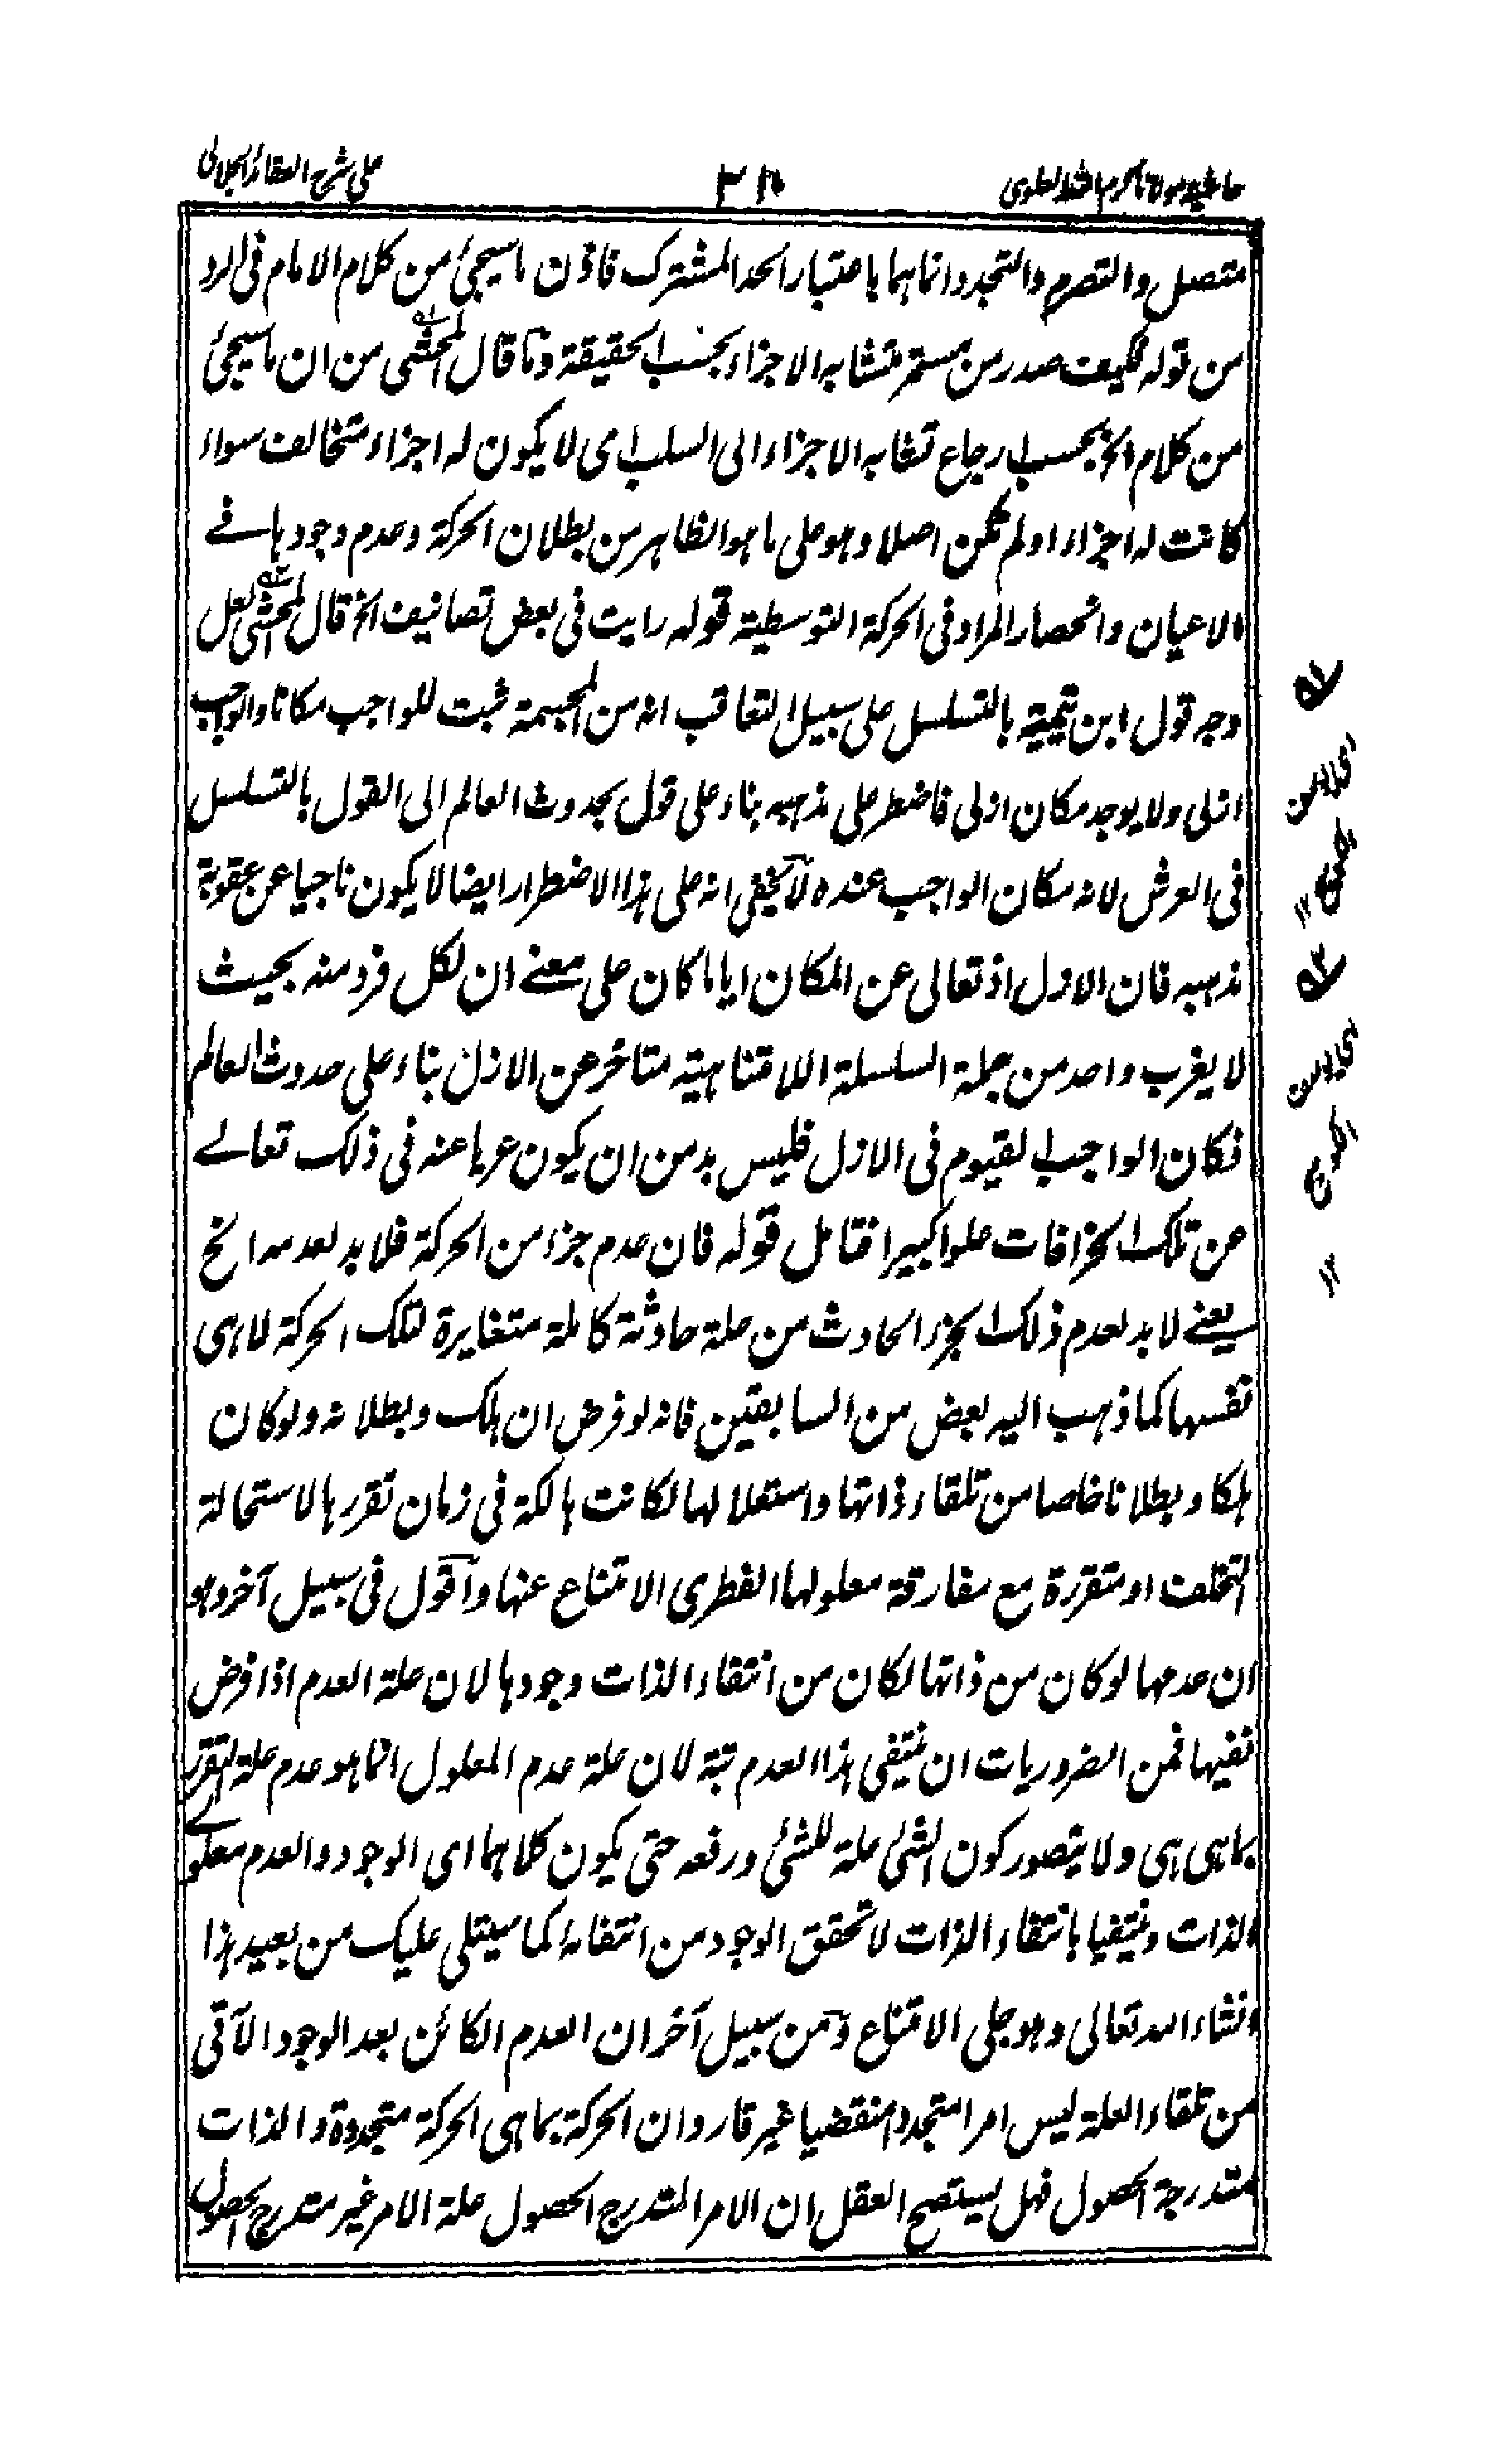 على شرح العقائد الجلالى
متصل والتصرم والتجدد وانما هما باعتبار الحد المشترك فاذن ما سيجئ من كلام الامام فى الرد
من قوله فكيف صدر من مستمر متشابه الاجزاء بحسب الحقيقة وما قال المحشى من ان ما سيجئ
من كلام الخ بحسب ارجاع تشابه الاجزاء الى السلب اى لا يكون له اجزاء متخالف سواء
كانت له اجزاء او لم تكن اصلا وهو على ما هو الظاهر من بطلان الحركة وعدم وجودها فے
الاعيان وانحصار المراد فى الحركة التوسطية قوله رايت فى بعض تصانيف الخ قال المحشى لعل
وجه قول ابن تيمية بالتسلسل على سبيل التعاقب انه من المجسمة فيثبت للواجب مكانا والواجب
ازلى ولا يوجد مكان ازلى فاضطر على مذهبه بناء على قول بحدوث العالم الى القول بالتسلسل
فى العرش لانه مكان الواجب عنده لا يخفى انه على هذا الاضطرار ايضا لا يكون ناجيا عن عقوبة
مذهبه فان الازل اذ تعالى عن المكان ايا ما كان على معنے ان لكل فرد منه بحيث
لا يغرب واحد من جملة السلسلة اللامتناهية متاخر عن الازل بناء على حدوث العالم
فكان الواجب القيوم فى الازل فليس بد من ان يكون عريا عنه فى ذلك تعالے
عن تلك الخرافات علوا كبيرا فتامل قوله فان عدم جزء من الحركة فلا بد لعدمه الخ
يعنے لا بد لعدم ذلك الجزء الحادث من علة حادثة كاملة متغايرة لتلك الحركة لا هى
نفسها كما ذهب اليه بعض من السابقين فانه لو فرض ان هلك وبطلانه ولو كان
هلكا وبطلانا خاصا من تلقاء ذاتها واستعلالها لكانت هالكة فى زمان تقررها لاستحالة
التخلف او متقررة مع مفارقة معلولها الفطرى الامتناع عنها واقول فى سبيل آخر وهو
ان عدمها لو كان من ذاتها لكان من انتفاء الذات وجودها لان علة العدم اذا فرض
نفيها فمن الضروريات ان ينتفى هذا العدم بتة لان علة عدم المعلول انما هو عدم علة التقرر
بما هى هى ولا يتصور كون الشئ علة للشئ ورفعه حتى يكون كلاهما اى الوجود والعدم معلولے
الذات وينتفيا بانتفاء الذات لا تحقق الوجود من انتفائه كما سيتلى عليك من بعيد هذا
انشاء الله تعالى وهو جلى الامتناع ومن سبيل آخر ان العدم الكائن بعد الوجود الآتى
من تلقاء العلة ليس امرا متجددا منقضيا غير قار وان الحركة بما هى الحركة متجددة والذات
متدرجة الحصول فهل يستصح العقل ان الامر المتدرج الحصول علة الامر غير متدرج الحصول